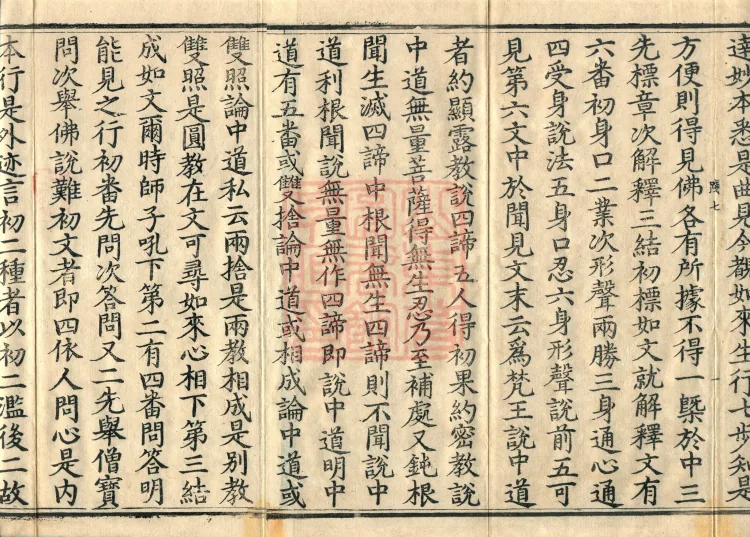 達妙本悉是曲見今觀如來生行七步知是
方便則得見佛各有所據不得一槩於中三
先標章次解釋三結初標如文就解釋文有
六番初身口二業次形聲兩勝三身通心通
四受身說法五身口忍六身形聲說前五可
見第六文中於聞見文末云爲梵王說中道
者約顯露教說四諦五人得初果約密教說
中道無量菩薩得無生忍乃至補處又鈍根
聞生滅四諦中根聞無生四諦則不聞說中
道利根聞說無量無作四諦即說中道明中
道有五番或雙捨論中道或相成論中道或
雙照論中道私云兩捨是兩教相成是別教
雙照是圓教在文可尋如來心相下第三結
成如文爾時師子吼下第二有四番問答明
能見之行初番先問次答問又二先舉僧寶
問次舉佛說難初文者即四依人問心是内
本行是外迹言初二種者以初二濫後二故